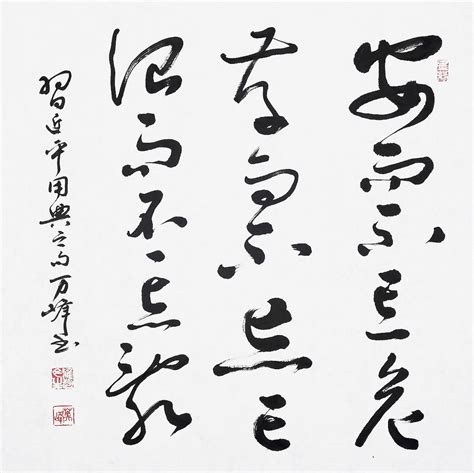 安而不忘危
存而不忘亡
治而不忘亂
習近平用典之句万峰书